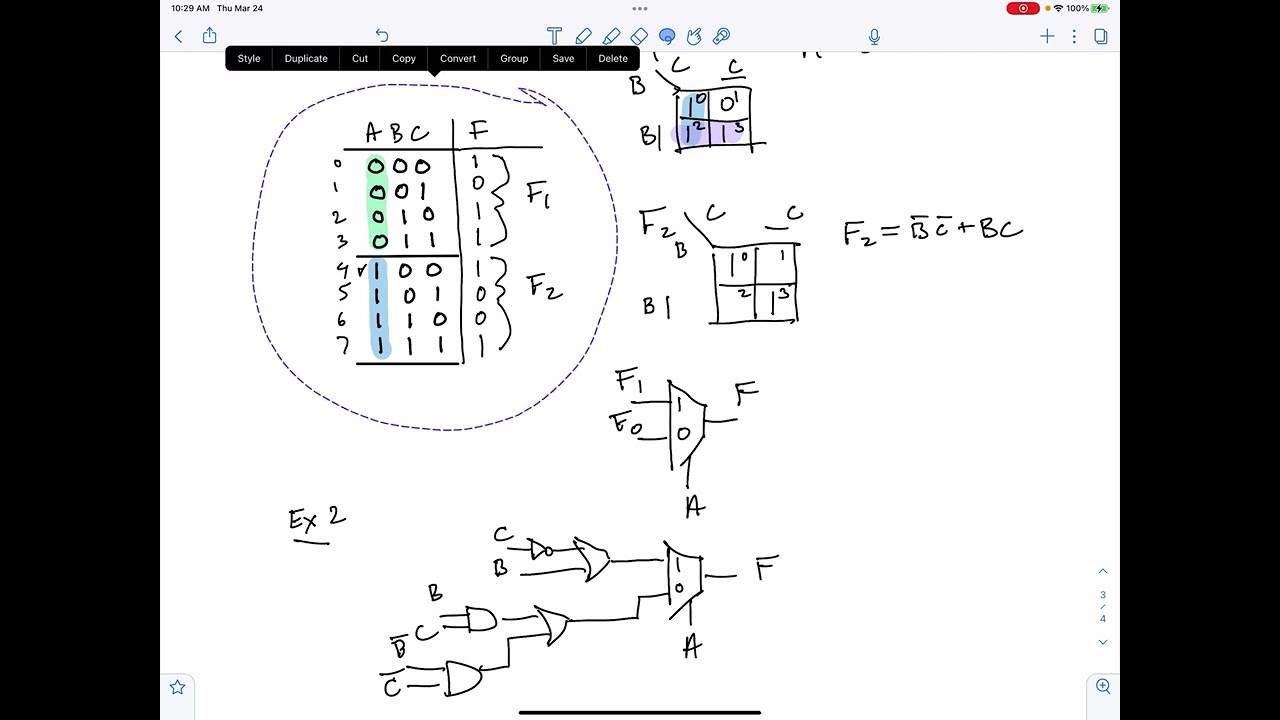 10:29 AM Thu Mar 24
100%
Style Duplicate Cut Copy Convert Group Save Delete
C C
B
1 0 0 1
B 1 1 2 1 3
A B C F
0 0 0 0 1
1 0 0 1 0
2 0 1 0 1
3 0 1 1 1
F1
4 1 0 0 1
5 1 0 1 0
6 1 1 0 0
7 1 1 1 1
F2
F2 C C
B
1 0 1
B 1 2 1 3
F2 = B̅ C̅ + BC
F1 1 F
F0 0
A
Ex 2
C
B
1 F
0
B
C
B̅
C̅
A
3
/
4